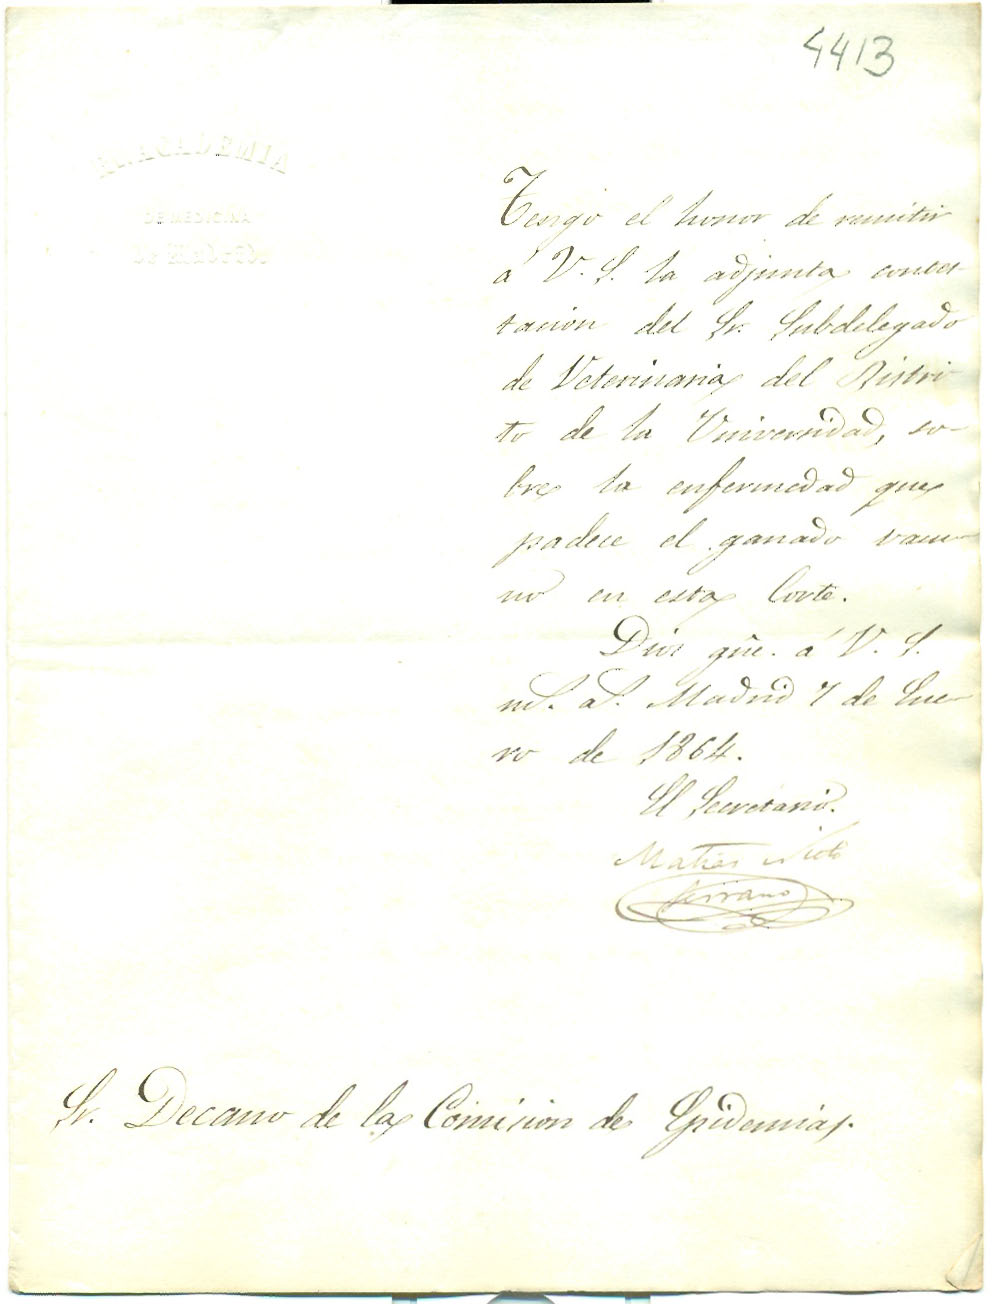 4413
Rl. ACADEMIA
DE MEDICINA
de Madrid.
Tengo el honor de remitir
á V. S. la adjunta contes-
tacion del Sr. Subdelegado
de Veterinaria del Distri-
to de la Universidad, so-
bre la enfermedad que
padece el ganado vacu-
no en esta Corte.
Dios gūe. á V. S.
ms. as. Madrid 7 de Ene-
ro de 1864.
El Secretario.
Matias Nieto
Serrano
Sr. Decano de la Comision de Epidemias.